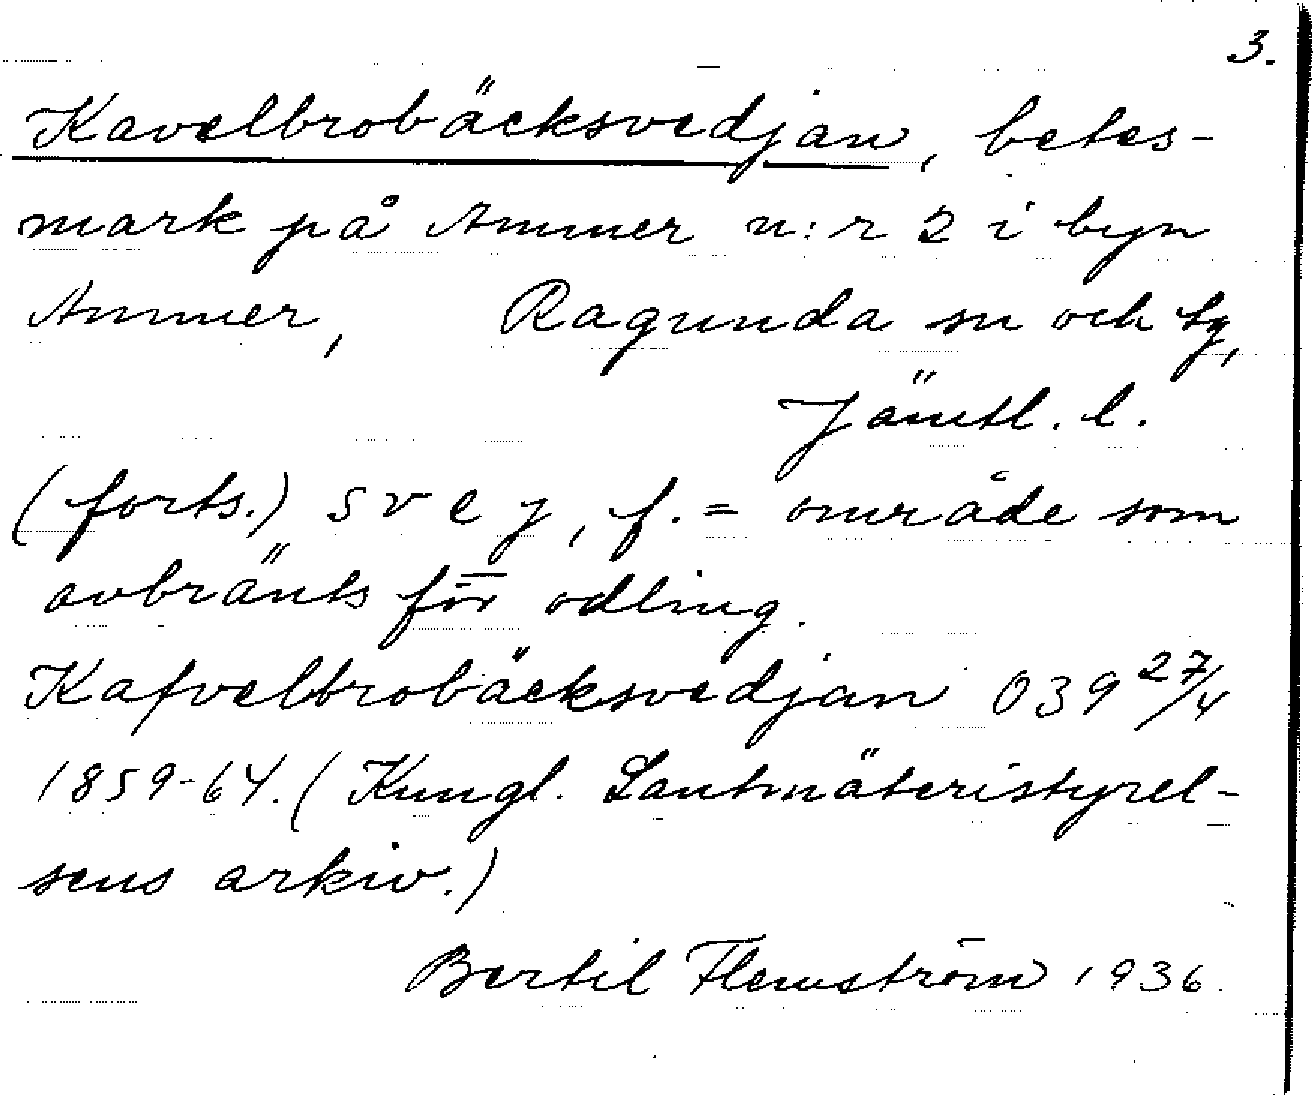 3.
Kavelbrobäcksvedjan, betes-
mark på Ammer n:r 2 i byn
Ammer, Ragunda sn och tg,
Jämtl. l.
(forts.) svej, f. = område som
avbränts för odling.
Kafvelbrobäcksvedjan 039 27/4
1859-64. (Kungl. Lantmäteristyrel-
sens arkiv.)
Bertil Flemström 1936.